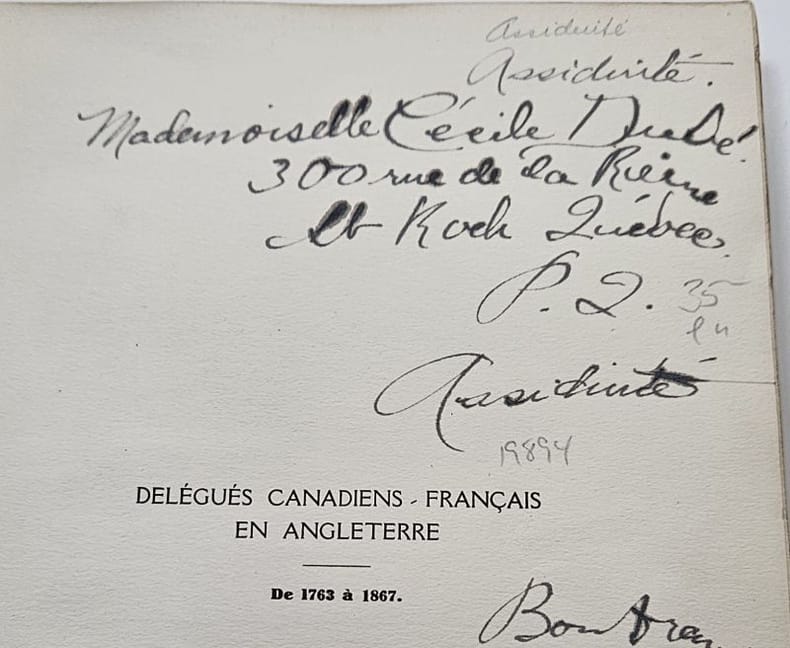 Assiduité
Assiduité.
Mademoiselle Cécile Dubé.
300 rue de la Reine
St Roch Québec.
P. Q. 35
Assiduité
19894
DELÉGUÉS CANADIENS - FRANÇAIS
EN ANGLETERRE
De 1763 à 1867.
Bon